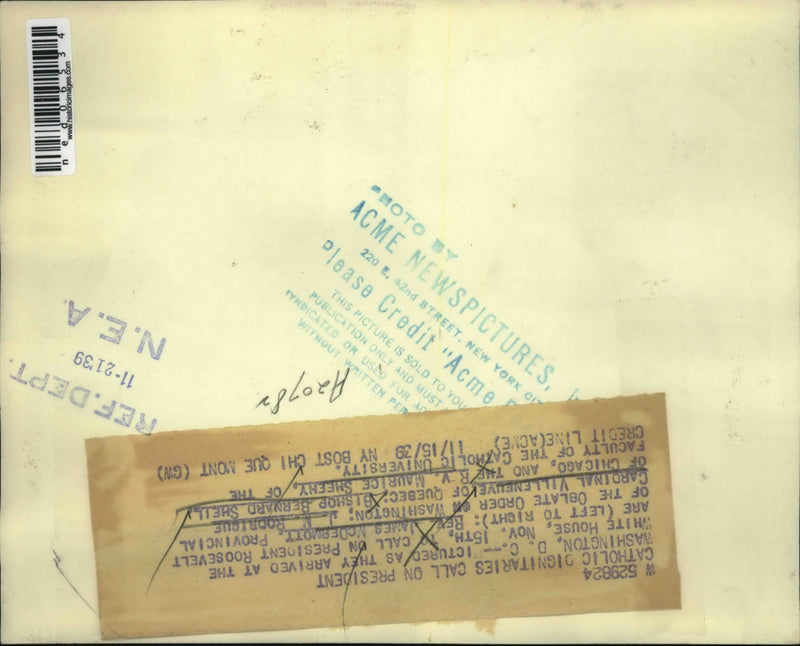 ned06534
www.historicimages.com
PHOTO BY
ACME NEWSPICTURES,
220 E. 42nd STREET, NEW YORK CITY
Please Credit "Acme
THIS PICTURE IS SOLD TO YOU
PUBLICATION ONLY AND MUST
SYNDICATED OR USED FOR AD
WITHOUT WRITTEN PER
REF. DEPT.
11-21'39
N.E.A.
W 529824
CATHOLIC DIGNITARIES CALL ON PRESIDENT
WASHINGTON, D. C.--PICTURED AS THEY ARRIVED AT THE
WHITE HOUSE, NOV. 15TH, TO CALL ON PRESIDENT ROOSEVELT
ARE (LEFT TO RIGHT): REV. JAMES MCDERMOTT, PROVINCIAL
OF THE OBLATE ORDER IN WASHINGTON; J. M. RODRIGUE
CARDINAL VILLENEUVE, OF QUEBEC; BISHOP BERNARD SHEIL
OF CHICAGO, AND THE R. V. MAURICE SHEEHY, OF THE
FACULTY OF THE CATHOLIC UNIVERSITY.
CREDIT LINE(ACME) 11/15/39 NY BOST CHI QUE MONT (GW)